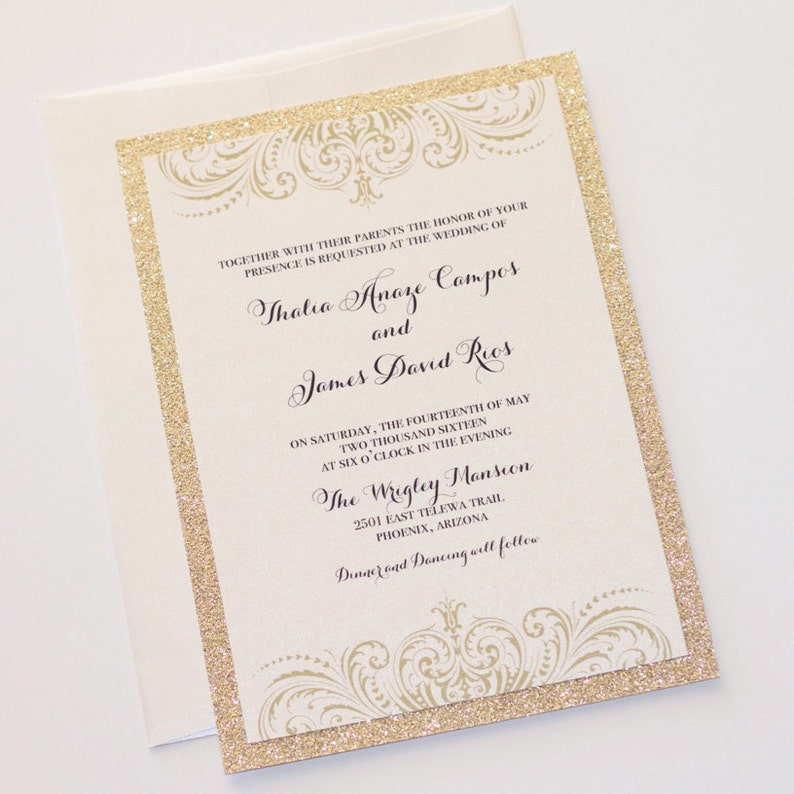 TOGETHER WITH THEIR PARENTS THE HONOR OF YOUR
PRESENCE IS REQUESTED AT THE WEDDING OF
Thalia Anaze Campos
and
James David Rios
ON SATURDAY, THE FOURTEENTH OF MAY
TWO THOUSAND SIXTEEN
AT SIX O'CLOCK IN THE EVENING
The Wrigley Mansion
2501 EAST TELEWA TRAIL
PHOENIX, ARIZONA
Dinner and Dancing will follow